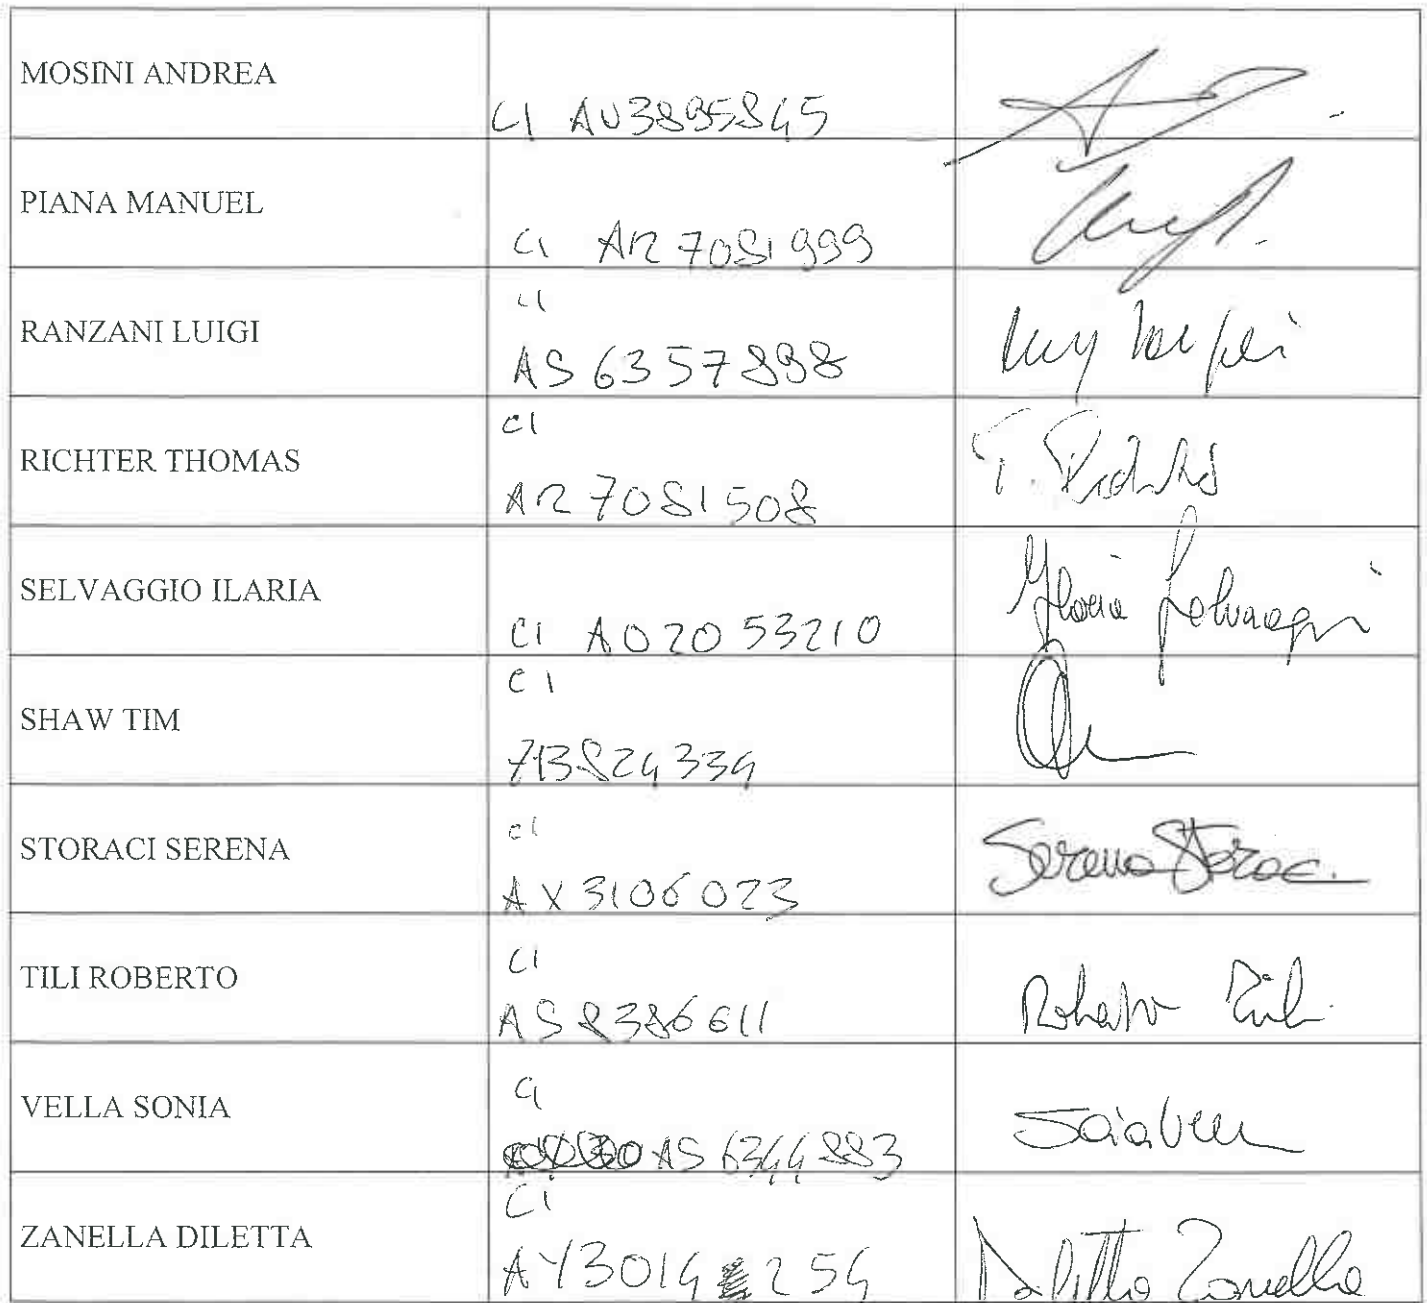 MOSINI ANDREA
CI AU3895845
PIANA MANUEL
CI AR 7081999
RANZANI LUIGI
CI
AS 6357898
RICHTER THOMAS
CI
AR 7081508
T. Richter
SELVAGGIO ILARIA
CI AO2053210
Ilaria Selvaggio
SHAW TIM
CI
713824334
STORACI SERENA
CI
AX 3106023
Serena Storaci
TILI ROBERTO
CI
AS 8386611
Roberto Tili
VELLA SONIA
CI
AS 6344883
Sonia Vella
ZANELLA DILETTA
CI
AY3014254
Diletta Zanella